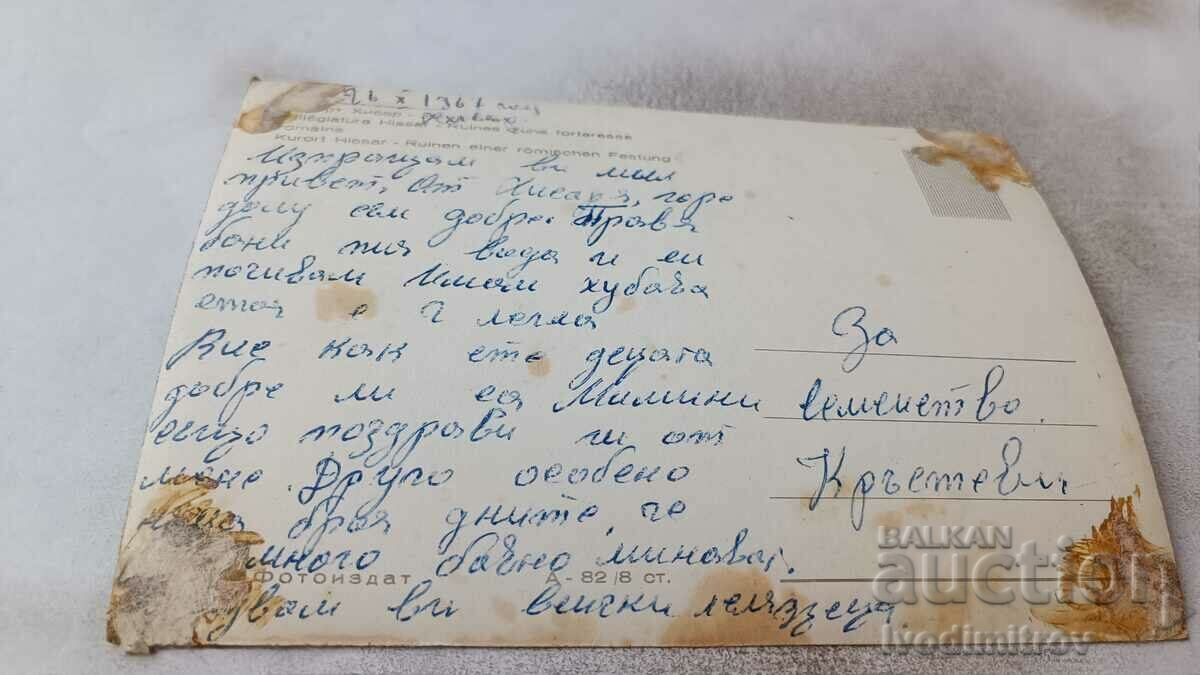 26 X 1961 год
Хисар -
Villégiature Hissar - Ruines d'une forteresse
romaine
Kurort Hissar - Ruinen einer römischen Festung
Изпращам ви мил
привет, от Хисаря, горе
долу съм добре. Правя
бани пия вода и си
почивам Имам хубава
стая с 4 легла
Вие как сте децата
добре ли са Мамини
поздрави ги от
мене. Друго особено
няма броя дните, че
много бавно минават.
ви всички
За
семейство
Кръстеви
Фотоиздат А-82/8 ст.
BALKAN
auction
ivodimitrov